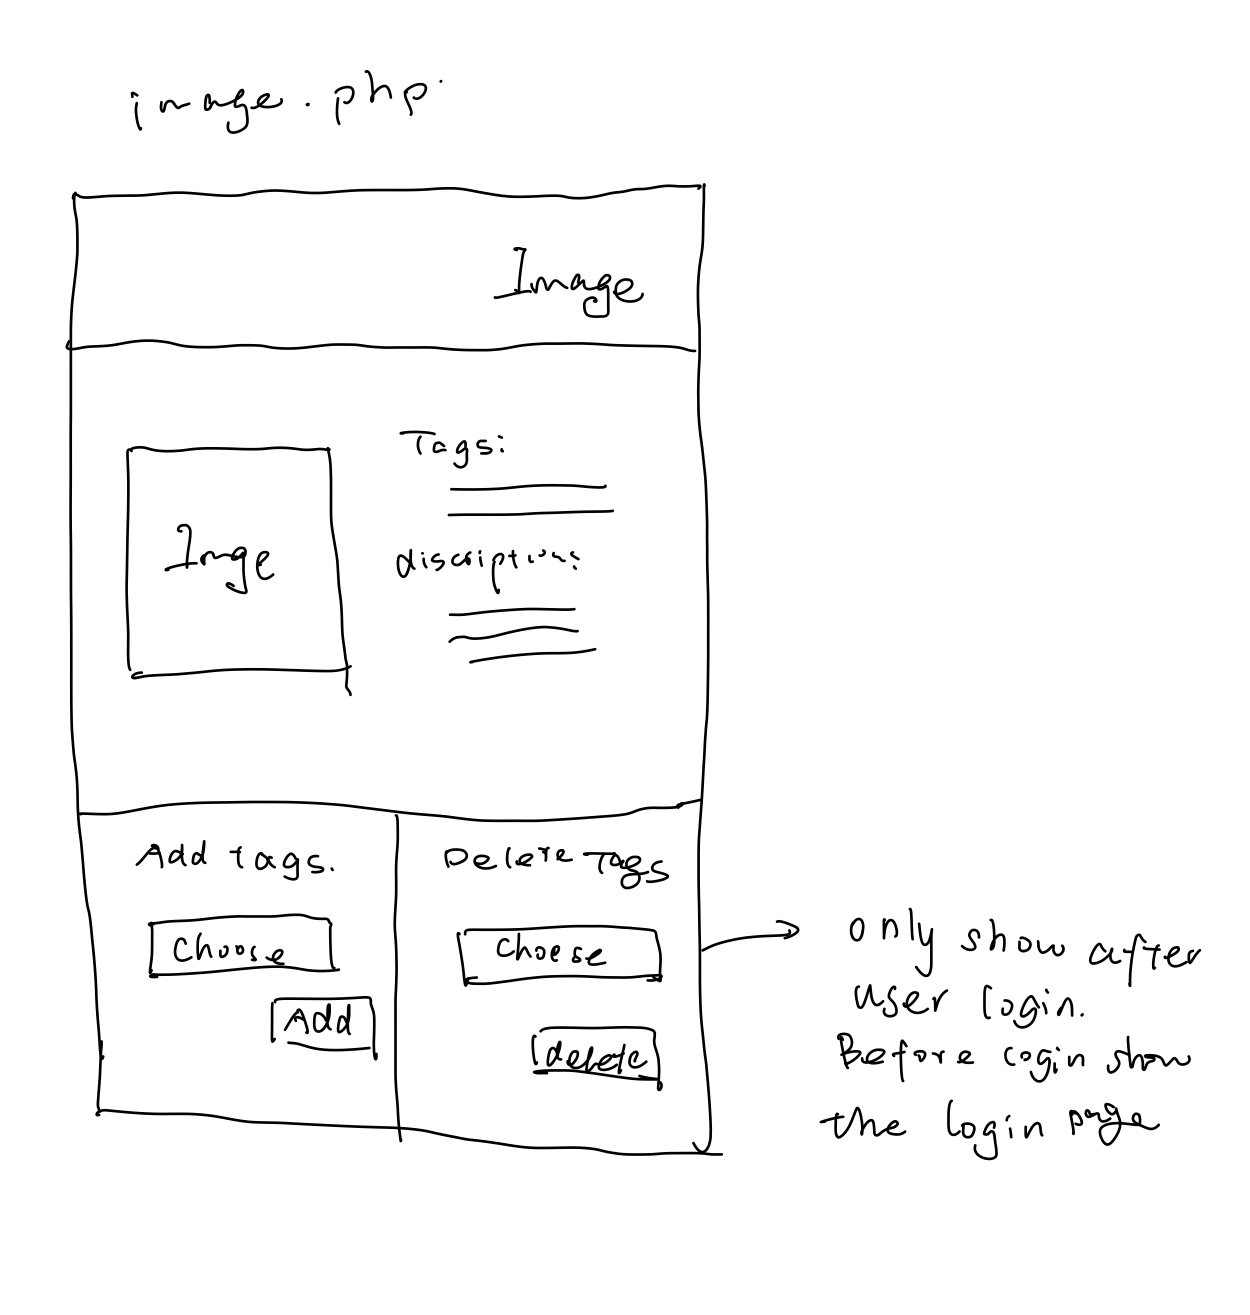 image.php.
Image
Imge
Tags:
discription:
Add tags.
Choose
Add
Delete Tags
Choese
delete
only show after
user login.
Before login show
the login page